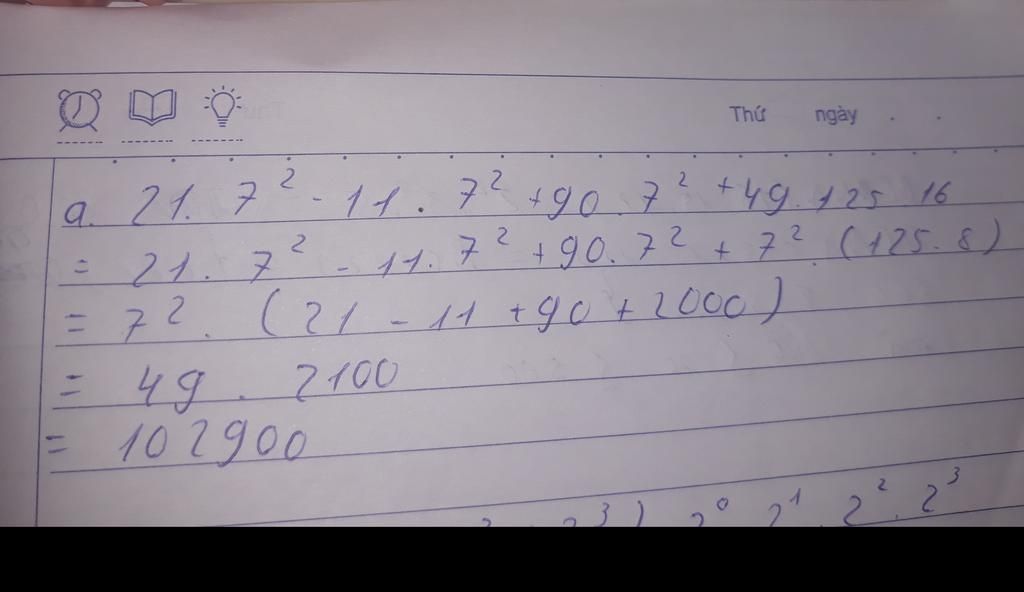 Thứ ngày . .
a. 21. 7² - 11 . 7² + 90 . 7² + 49 . 125 16
= 21 . 7² - 11 . 7² + 90 . 7² + 7² . (125 . 8)
= 7² . (21 - 11 + 90 + 2000)
= 49 . 2100
= 102900
³) 2⁰ 2¹ . 2² . 2³